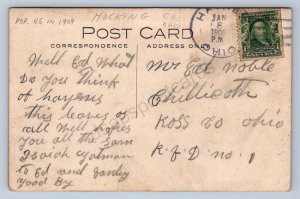 POP. 45 IN 1909
HOCKING CO.
OHIO
POST CARD
CORRESPONDENCE
ADDRESS ONLY
HA
JAN
8
1909
P.M.
OHIO
Well Ed What
Do You Think
of haynes
this leaves us
all Well hopes
You all the Sam
Isaiah
to Ed and famley
Good By
Mr Ed Noble
Chillicoth
Ross Co Ohio
R F D no. 1